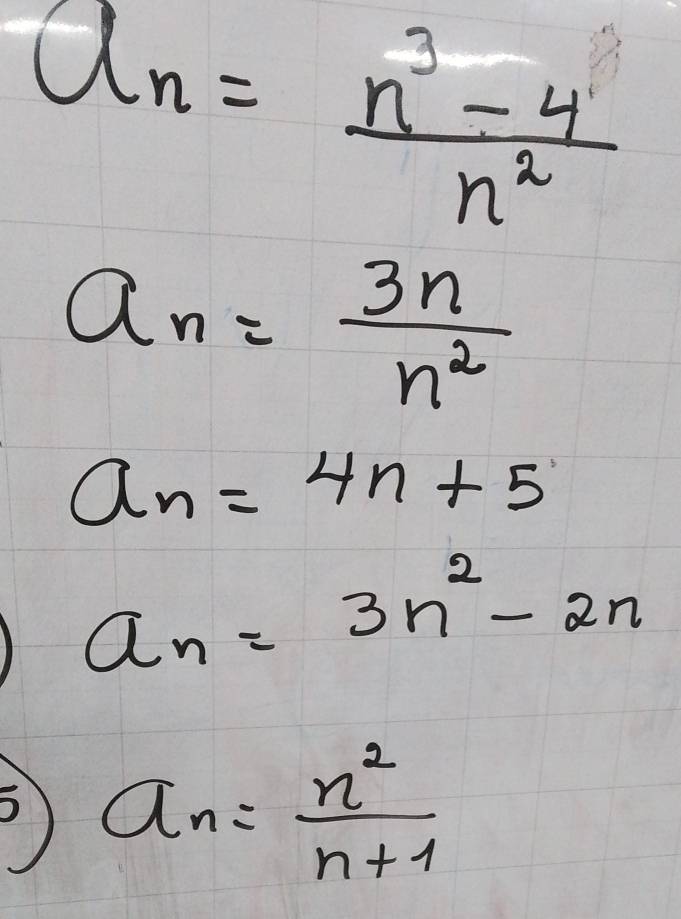 aₙ = (n³ - 4) / n²
aₙ = 3n / n²
aₙ = 4n + 5
) aₙ = 3n² - 2n
5) aₙ = n² / (n+1)